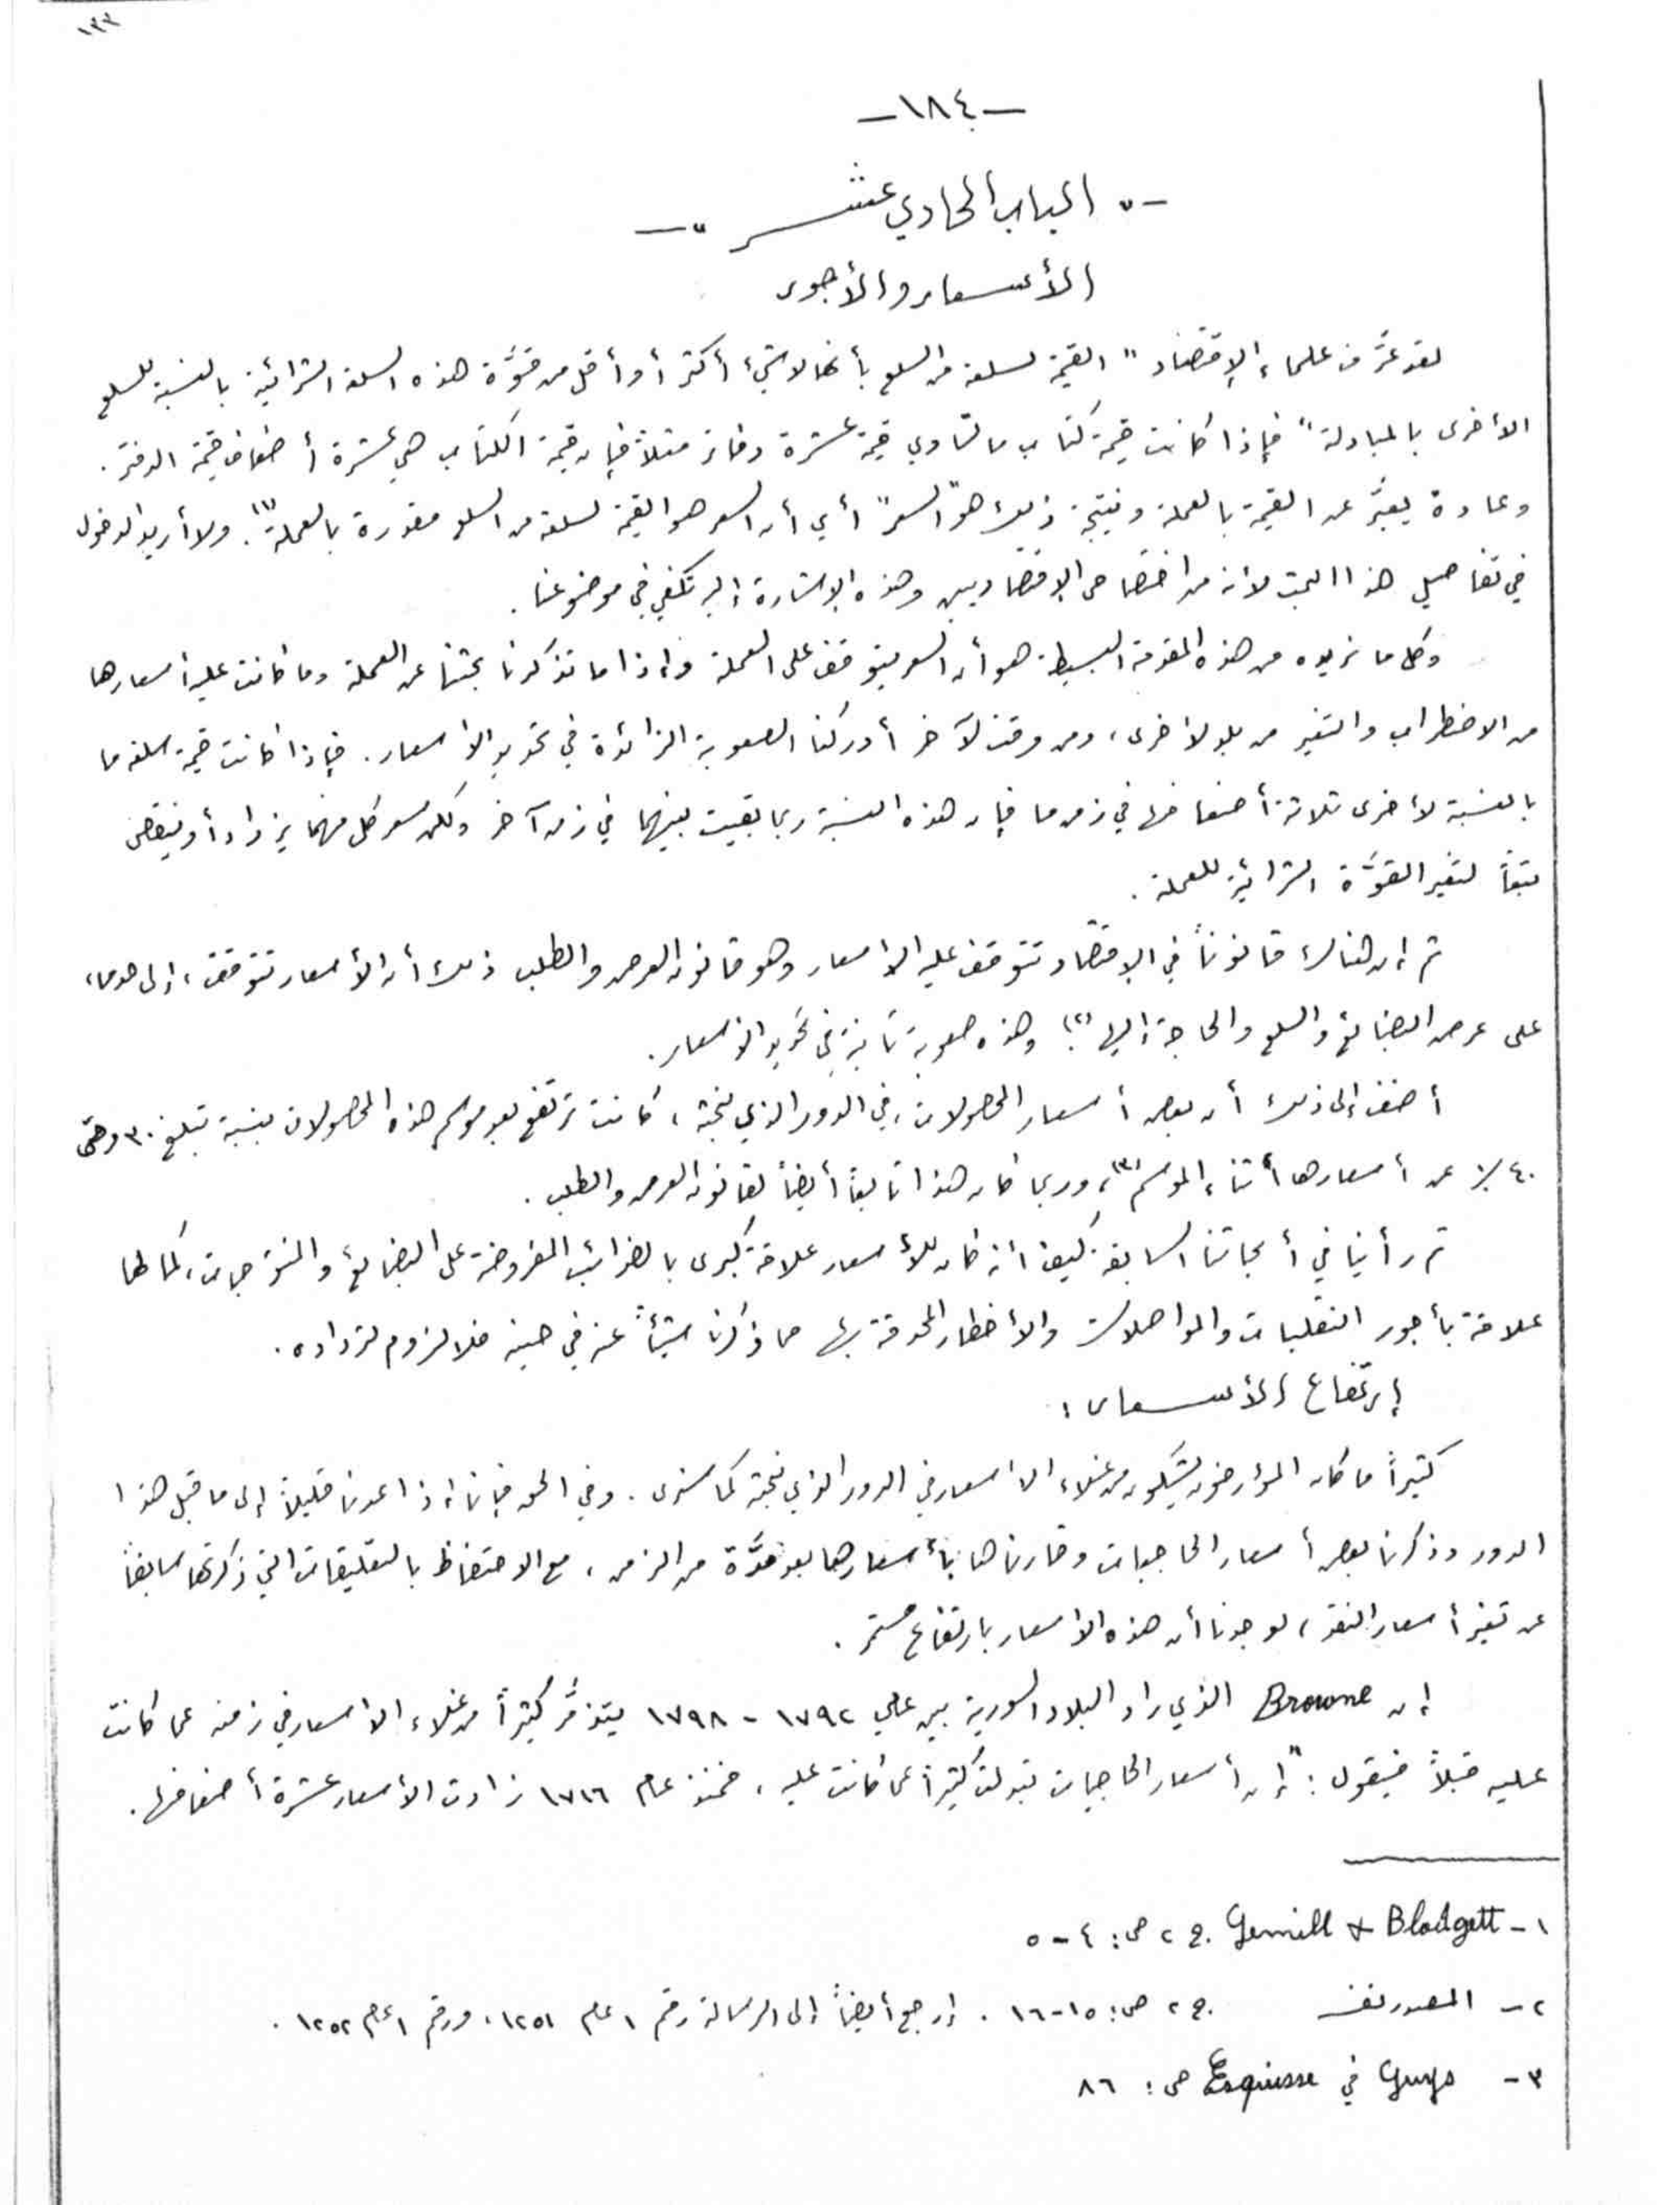 ١٣٣
-١٨٤-
-" الباب الحادي عشر "-
الأسعار والأجور
لقد عرَّف علماء الإقتصاد " القيمة لسلعة من السلع بأنها لاشيء أكثر أو أقل من قوَّة هذه السلعة الشرائية بالنسبة للسلع
الأخرى بالمبادلة" فإذا كانت قيمة كتاب ما تساوي قيمة عشرة دفاتر مثلاً فإن قيمة الكتاب هي عشرة أضعاف قيمة الدفتر .
وعادة يعبَّر عن القيمة بالعملة ونتيجة ذلك هو "السعر" أي أن السعر هو القيمة لسلعة من السلع مقدرة بالعملة (١). ولا أريد الدخول
في تفاصيل هذا البحث لأنه من اختصاص الإقتصاديين وهذه الإشارة إليه تكفي في موضوعنا .
وكل ما نريده من هذه المقدمة البسيطة هو أن السعر يتوقف على العملة وإذا ما تذكرنا بحثنا عن العملة وما كانت عليه أسعارها
من الاضطراب والتغير من بلد لاخرى، ومن وقت لآخر أدركنا الصعوبة الزائدة في تحديد الاسعار . فإذا كانت قيمة سلعة ما
بالنسبة لأخرى ثلاثة أضعافها في زمن ما فإن هذه النسبة ربما بقيت بينهما في زمن آخر ولكن سعر كل منهما يزداد أو ينقص
تبعاً لتغير القوَّة الشرائية للعملة .
ثم إن هناك قانوناً في الإقتصاد تتوقف عليه الاسعار وهو قانون العرض والطلب ذلك أن الأسعار تتوقف، إلى حد ما،
على عرض البضائع والسلع والحاجة إليها (٢)؛ وهذه صعوبة ثانية في تحديد الاسعار .
أضف إلى ذلك أن بعض أسعار المحصولات، في الدور الذي نبحثه، كانت ترتفع بعد موسم هذه المحصولات بنسبة تبلغ ٣٠ وحتى
٤٠٪ عن أسعارها أثناء الموسم (٣)، وربما كان هذا تابعاً أيضاً لقانون العرض والطلب .
ثم رأينا في أبحاثنا السابقة كيف أنه كان للأسعار علاقة كبرى بالضرائب المفروضة على البضائع والمنتوجات، كما لها
علاقة بأجور النقليات والمواصلات والأخطار المحدقة بها مما ذكرنا شيئاً عنه في حينه فلا لزوم لترداده .
إرتفاع الأسعار :
كثيراً ما كان المؤرخون يشكون من غلاء الاسعار في الدور الذي نبحثه كما سنرى . وفي الحق فإننا إذا عدنا قليلاً إلى ما قبل هذا
الدور وذكرنا بعض أسعار الحاجيات وقارناها بأسعارها بعد مدَّة من الزمن، مع الاحتفاظ بالتعليقات التي ذكرتها سابقاً
عن تغير أسعار النقد، لوجدنا أن هذه الاسعار بارتفاع مستمر .
إن Browne الذي زار البلاد السورية بين عامي ١٧٩٢ - ١٧٩٨ يتذمَّر كثيراً من غلاء الاسعار في زمنه عما كانت
عليه قبلاً فيقول : "إن أسعار الحاجيات تبدلت كثيراً عما كانت عليه، فمنذ عام ١٧١٦ زادت الأسعار عشرة أضعافها .
١- Gemill & Blodgett ج. ٢ ص: ٤-٥
٢- المصدر نفسه ج. ٢ ص: ١٥-١٦ . إرجع أيضاً إلى الرسالة رقم ١ عام ١٢٥١، ورقم ١ عام ١٢٥٢ .
٣- Guys في Esquisse ص: ٨٦